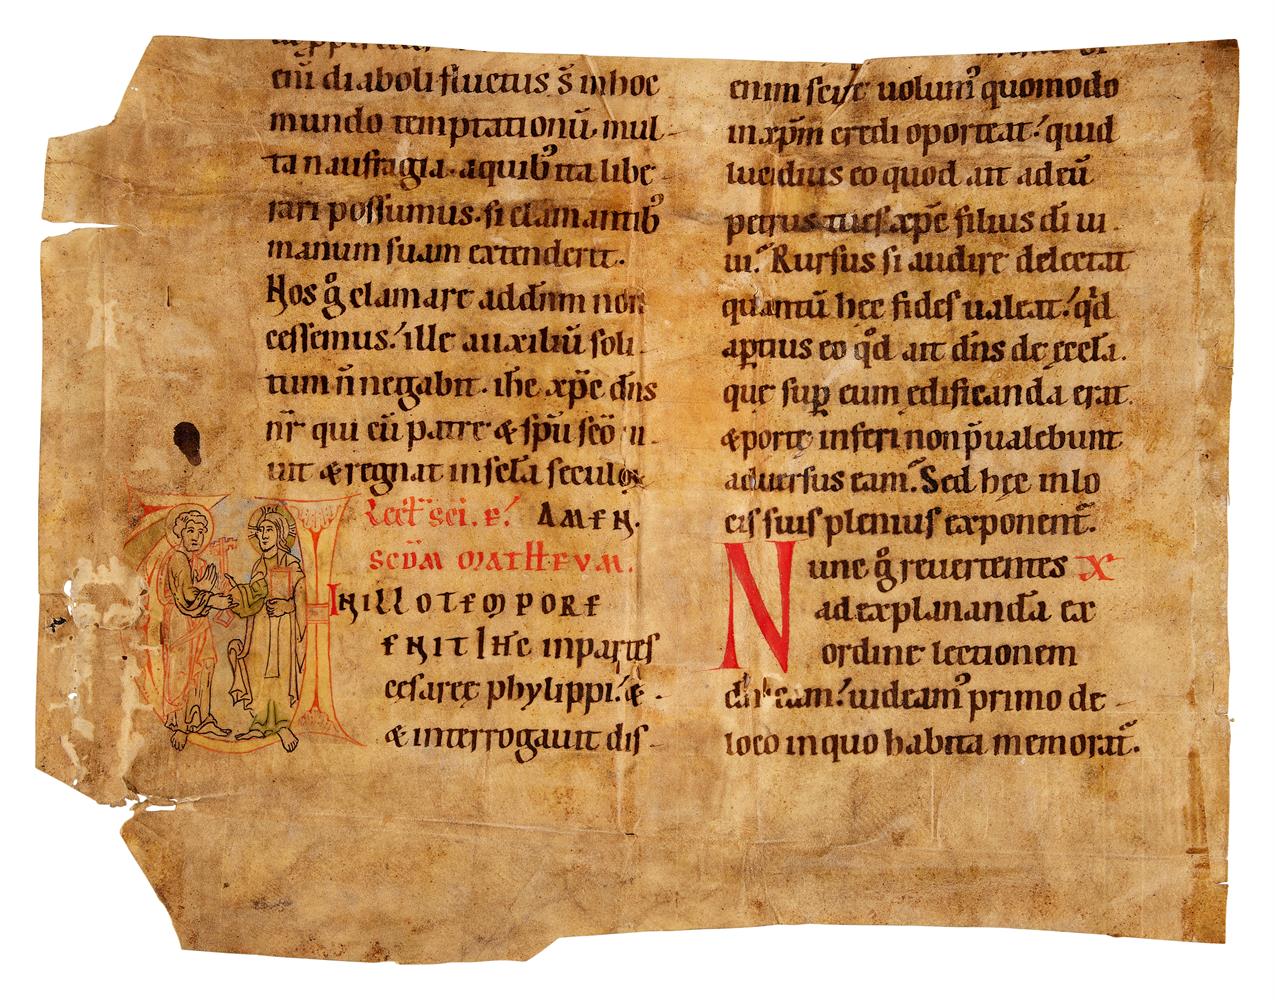 eni diaboli fluctus s̄ in hoc
mundo temptationū. mul-
ta naufragia. a quib⁹ ita libe-
rari possumus. si clamantib⁹
manum suam extenderit.
Nos g° clamare ad dn̄m non
cessemus. ille auxiliū soli-
tum n̄ negabit. ih̄c xp̄c dn̄s
nr̄ qui cū patre & sp̄u sc̄o ui-
uit & regnat in sc̄la seculoꝝ
Lect̄ sc̄i. e. AMEN.
SCD̄M MATHEUM.
IN ILLO TEMPORE
ENIT IH̄C in partes
cesaree phylippi. &
& interrogauit dis-
enim scire uolum⁹ quomodo
in xp̄m credi oporteat. quid
lucidius eo quod ait ad eū
petrus tu es xp̄c filius dī ui-
ui. Rursus si audire delectat
quantū hec fides ualeat. qd
aptius eo qd̄ ait dn̄s de eccl̄a.
que sup̱ eum edificanda erat
& porte inferi non p̄ualebunt
aduersus eam. Sed hec in lo
cis suis plenius exponent̄.
Nunc g° reuertentes
ad explananda ex
ordine lectionem
uideam⁹ primo de
loco in quo habita memorat̄.